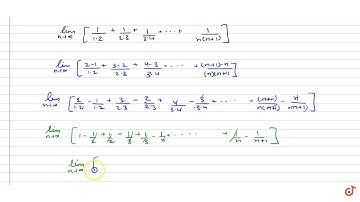 lim n→∞ [ 1/1·2 + 1/2·3 + 1/3·4 + ····· + 1/n(n+1) ]
lim n→∞ [ 2-1/1·2 + 3-2/2·3 + 4-3/3·4 ····· + (n+1)-n/(n)(n+1) ]
lim n→∞ [ 2/1·2 - 1/1·2 + 3/2·3 - 2/2·3 + 4/3·4 - 3/3·4 + ····· + (n+1)/n(n+1) - n/n(n+1) ]
lim n→∞ [ 1 - 1/2 + 1/2 - 1/3 + 1/3 - 1/4 + ····· + 1/n - 1/n+1 ]
lim n→∞ [